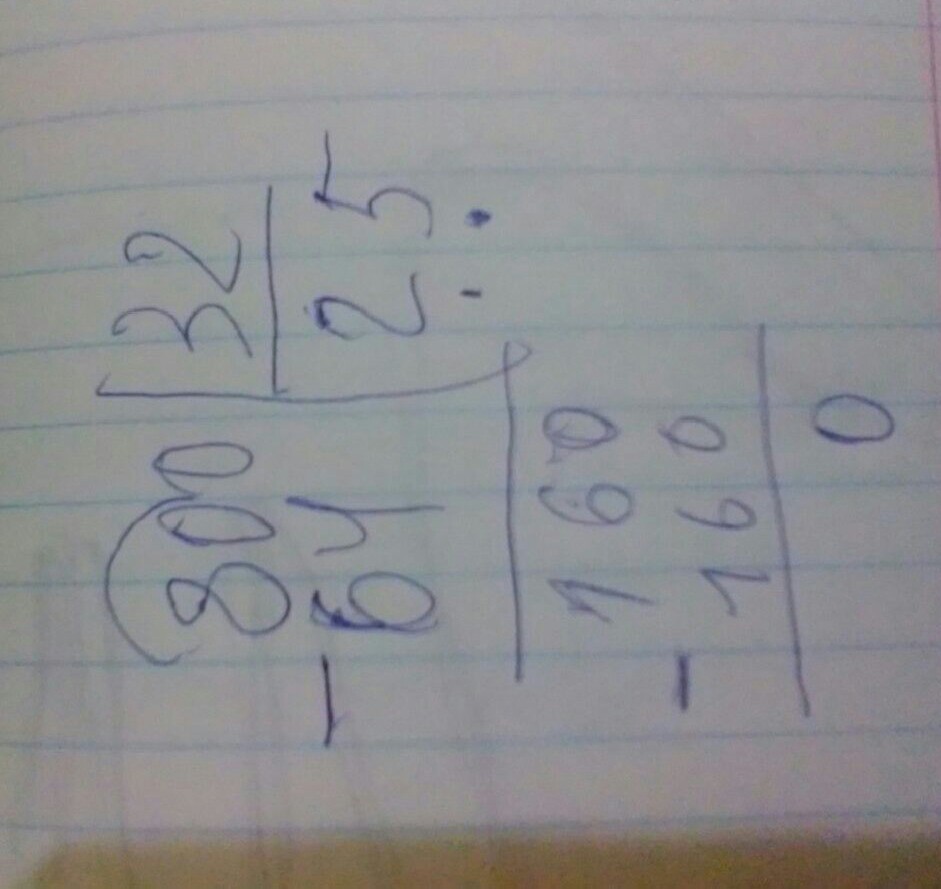 800 32
- 64 25
160
- 160
0